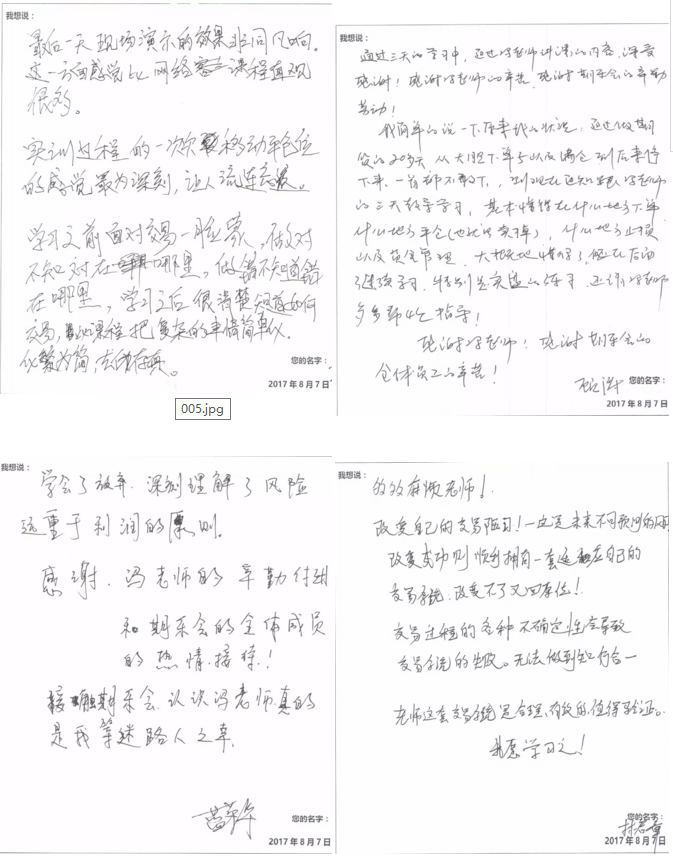 我想说：
最后一天现场演示的效果非同凡响。
这一方面感觉比网络课程直观
很多。
实训过程的一次次移动平仓位
的感觉最为深刻，让人流连忘返。
学习之前面对交易一脸蒙，做对
不知对在哪里，做错不知道错
在哪里，学习之后很清楚知道如何
交易，课程把复杂的事情简单化。
化繁为简，去伪存真。
您的名字：
2017 年 8 月 7 日
005.jpg
我想说：
通过三天的学习中，通过冯老师讲课的内容，深受
感谢！感谢冯老师的辛苦，感谢期乐会的辛勤
劳动！
我简单的说一下后来我的状况，通过做期
货的203天，从大胆下单予以及满仓到后来停
下来，一首都不敢下，到现在通知跟冯老师
的三天教学学习，基本懂得在什么地方下单
什么地方平仓，什么地方止损
以及资金管理，大概地懂得了，但在后面
多多帮忙指导！
感谢冯老师！感谢期乐会的
全体员工的辛苦！
您的名字：
2017 年 8 月 7 日
我想说：
学会了放弃，深刻理解了风险
远重于利润的原则。
感谢，冯老师的辛勤付出
和期乐会的全体成员
的热情接待！
接触期乐会，认识冯老师，真的
是我等迷路人之幸，
您的名字：
2017 年 8 月 7 日
我想说：
的的麻烦老师！
改变自己的交易陋习！一定是未来不可预测的
改变成功则顺利拥有一套适应在自己的
交易系统，改变不了又回原位！
交易过程的各种不确定性会导致
交易系统的失败。无法做到知行合一
老师这套交易系统是合理、有效的，值得验证。
我愿学习之！
您的名字：
2017 年 8 月 7 日